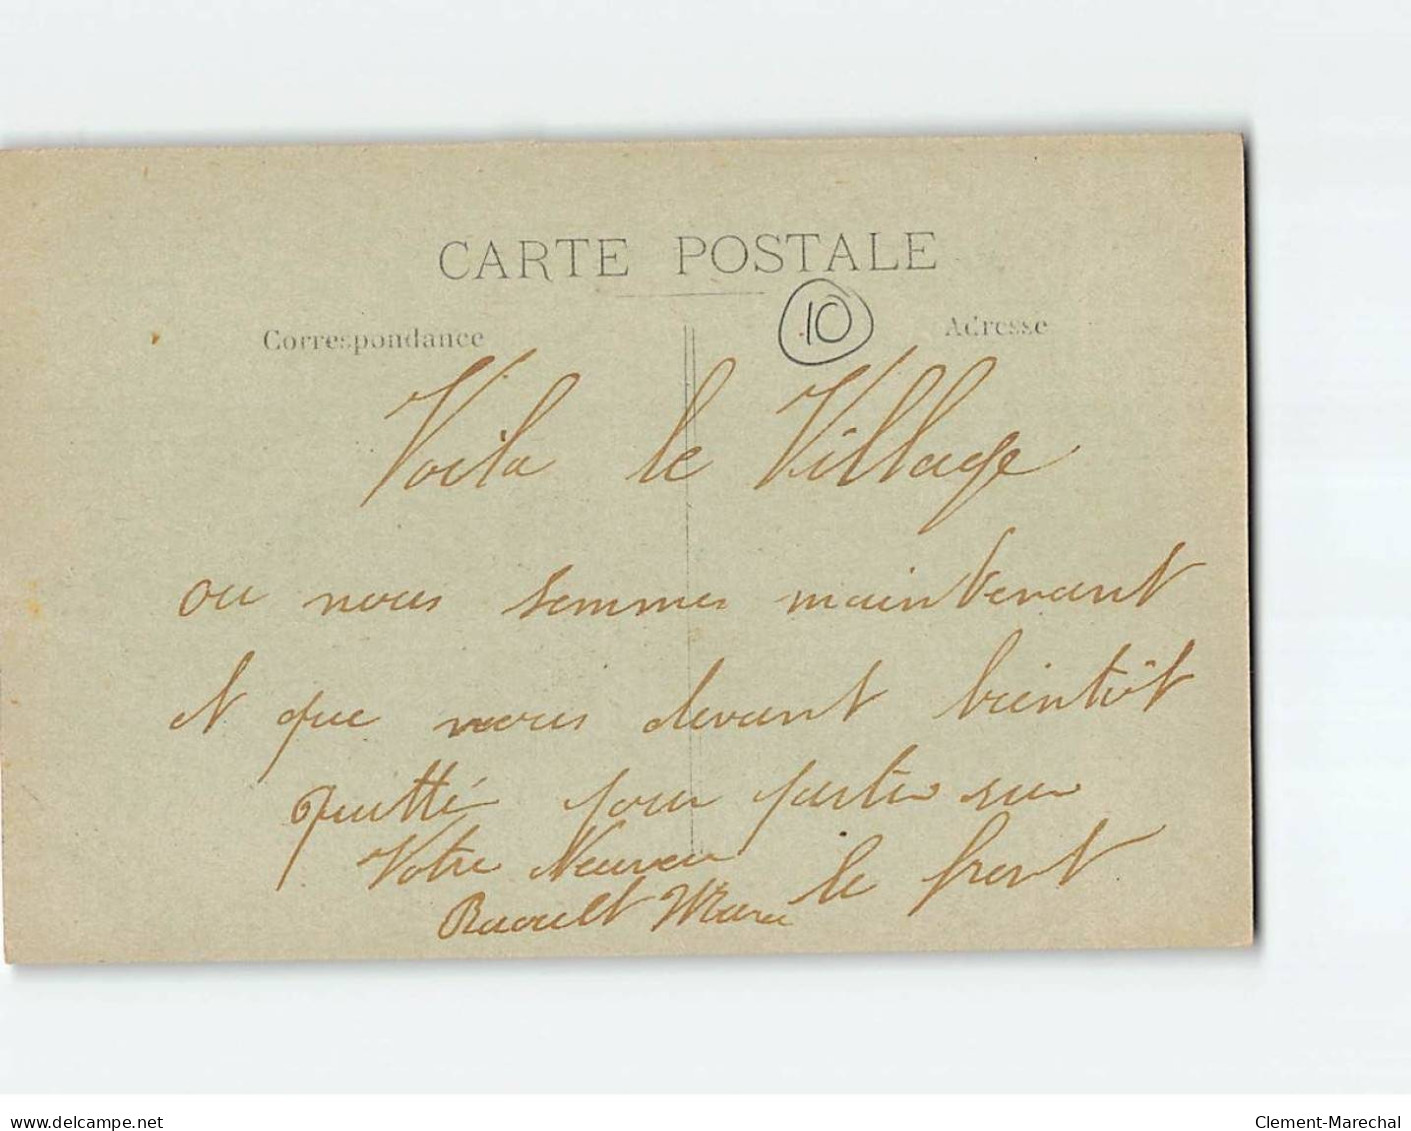 CARTE POSTALE
10
Correspondance
Adresse
Voila le Village
ou nous sommes maintenant
et que nous devant bientôt
quitté pour partir sur
le front
Votre Neuveu
Raoult
www.delcampe.net
Clement-Marechal